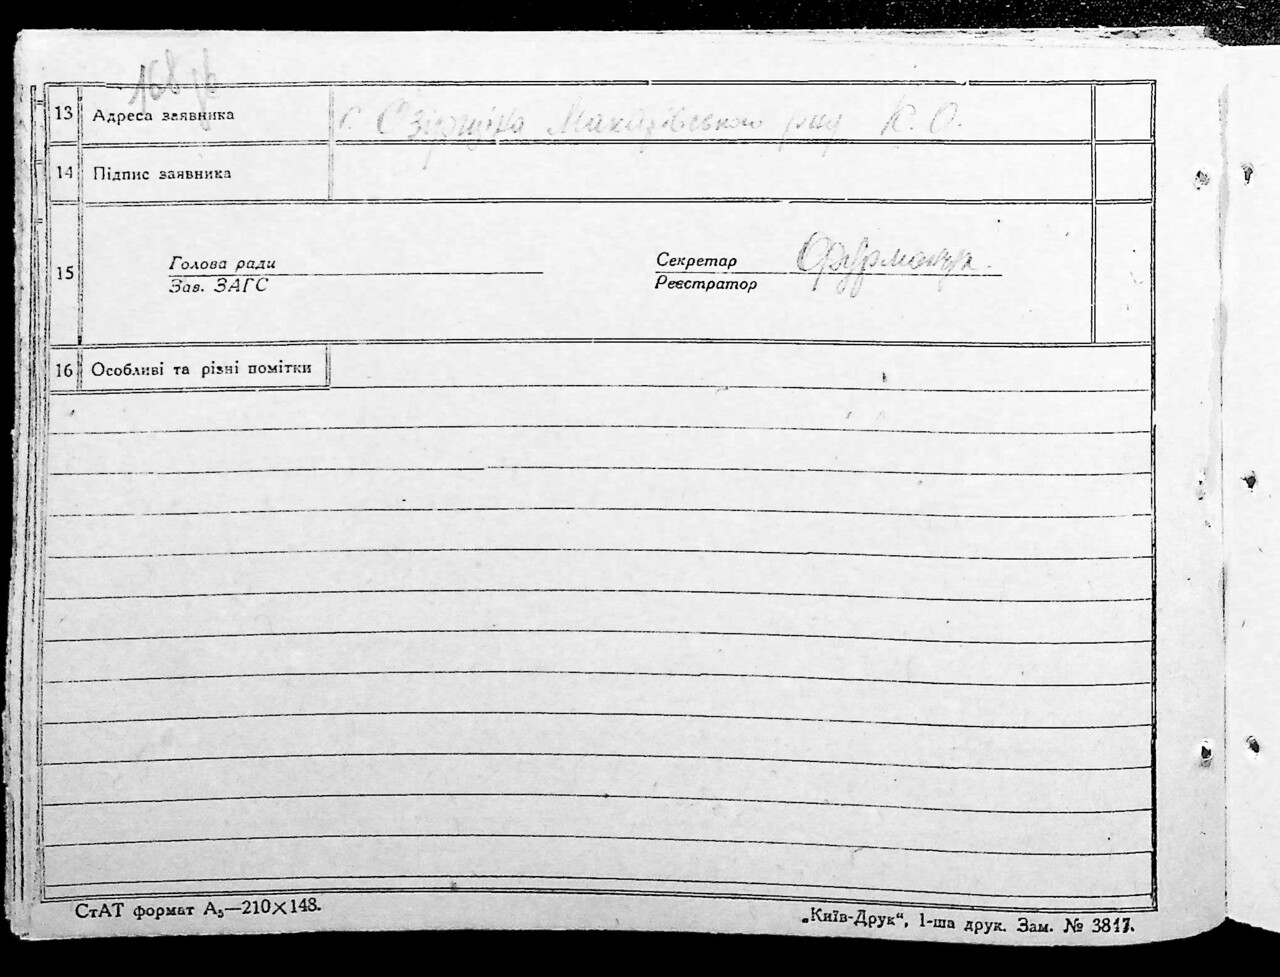 168 зв
13 Адреса заявника с. Озірщина Макарівського р-ну К. О.
14 Підпис заявника
15 Голова ради Секретар Фурманчук.
Зав. ЗАГС Реєстратор
16 Особливі та різні помітки
СтАТ формат А₅—210×148.
„Київ-Друк“, 1-ша друк. Зам. № 3817.